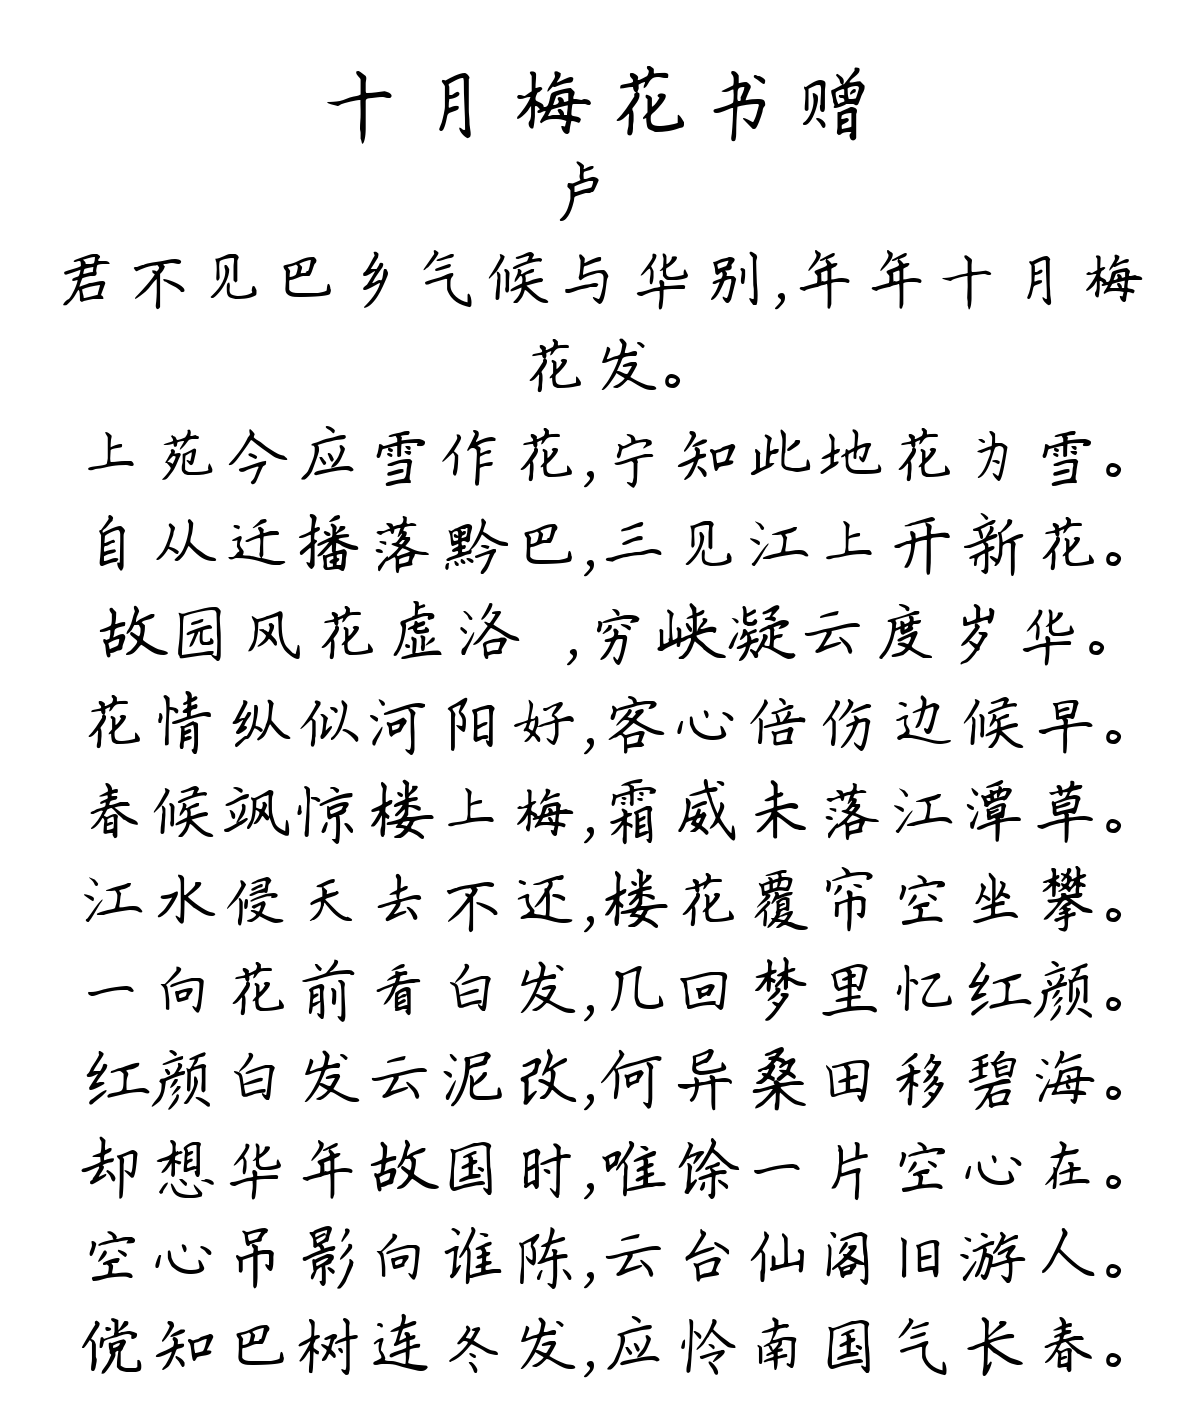 十月梅花书赠
卢
君不见巴乡气候与华别,年年十月梅
花发。
上苑今应雪作花,宁知此地花为雪。
自从迁播落黔巴,三见江上开新花。
故园风花虚洛 ,穷峡凝云度岁华。
花情纵似河阳好,客心倍伤边候早。
春候飒惊楼上梅,霜威未落江潭草。
江水侵天去不还,楼花覆帘空坐攀。
一向花前看白发,几回梦里忆红颜。
红颜白发云泥改,何异桑田移碧海。
却想华年故国时,唯馀一片空心在。
空心吊影向谁陈,云台仙阁旧游人。
傥知巴树连冬发,应怜南国气长春。